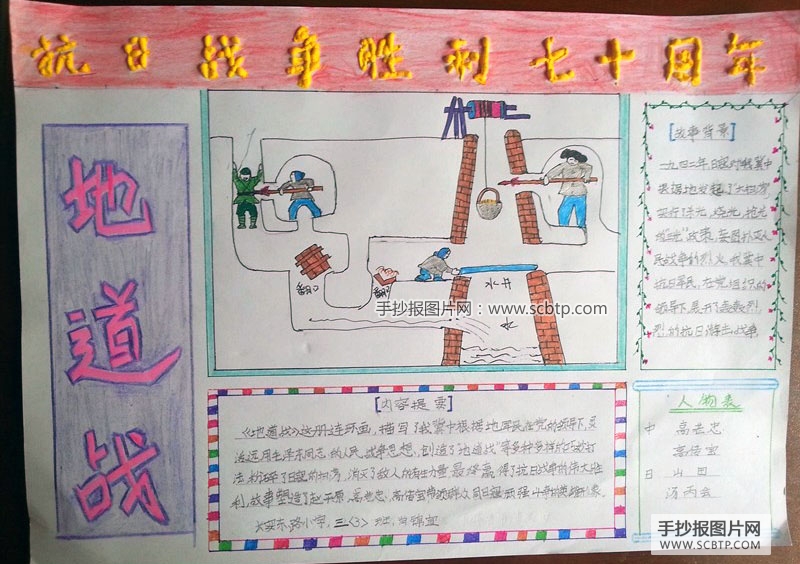 抗日战争胜利七十周年
地道战
翻口
翻
水井
水
手抄报图片网：www.scbtp.com
[故事背景]
一九四二年日寇对我冀中
根据地发起了大扫荡
实行了杀光，烧光，抢光
政策，妄图扑灭人
民战争的烈火，我冀中
抗日军民，在党组织的
领导下，展开了轰轰烈
烈的抗日游击战争
[内容提要]
《地道战》这册连环画，描写了我冀中根据地军民在党的领导下，灵
活运用毛泽东同志的人民战争思想，创造了"地道战"等多种多样的巧妙打
法，粉碎了日寇的扫荡，消灭了敌人的有生力量，最终赢得了抗日战争的伟大胜
利，故事塑造了赵平原、高老忠、高传宝等
太平东路小学，三〈3〉班
人物表
中 高老忠
高传宝
日 山田
汤丙会
手抄报图片网
WWW.SCBTP.COM